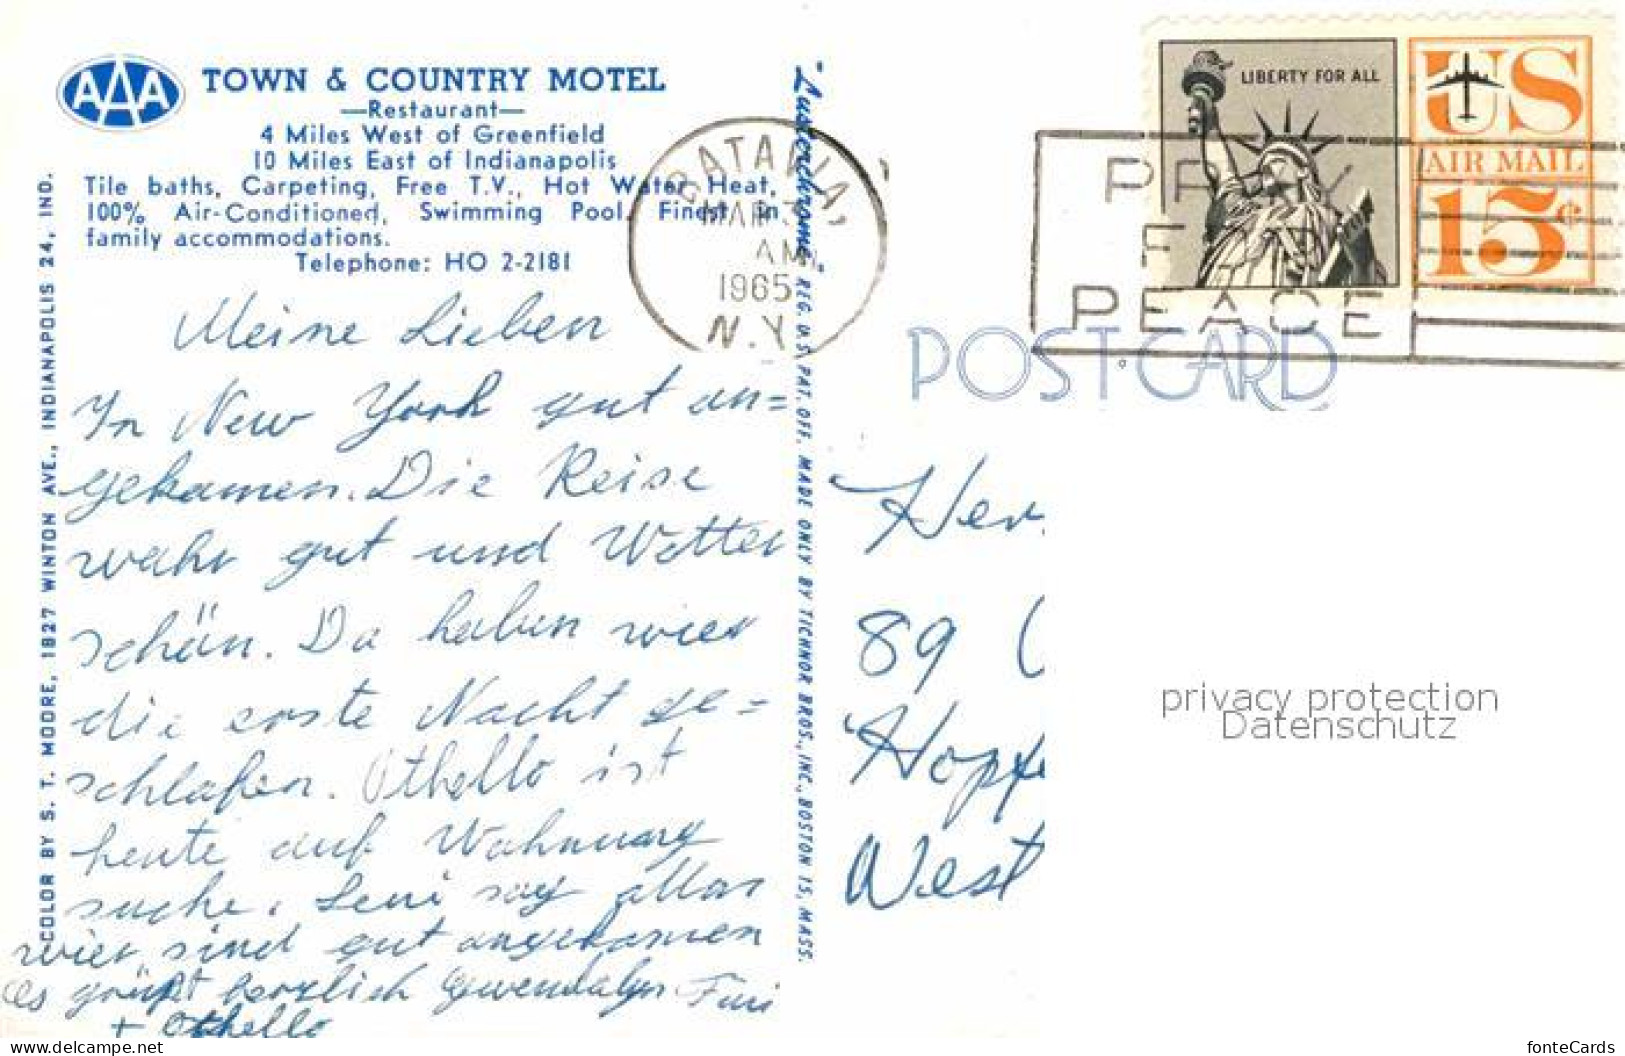 AAA
TOWN & COUNTRY MOTEL
—Restaurant—
4 Miles West of Greenfield
10 Miles East of Indianapolis
Tile baths, Carpeting, Free T.V., Hot Water Heat,
100% Air-Conditioned, Swimming Pool. Finest in
family accommodations.
Telephone: HO 2-2181
COLOR BY S. T. MOORE, 1827 WINTON AVE., INDIANAPOLIS 24, IND.
Meine Lieben
In New York gut an=
gekamen. Die Reise
wahr gut und Wetter
schön. Da haben wier
die erste Nacht ge=
schlafen. Othello ist
heute auf Wohnung
suche. Leni sag allen
wier sind gut angekamen
es grüßt herzlich Gwendalyn Furi
+ Othello
"Lusterchrome" REG. U.S. PAT. OFF. MADE ONLY BY TICHNOR BROS., INC., BOSTON 15, MASS.
BATAVIA,
MAR
AM
1965
N.Y.
LIBERTY FOR ALL
US
AIR MAIL
15¢
PRAY
FOR
PEACE
POST·CARD
Herr
89
Hopf
West
privacy protection
Datenschutz
www.delcampe.net
fonteCards